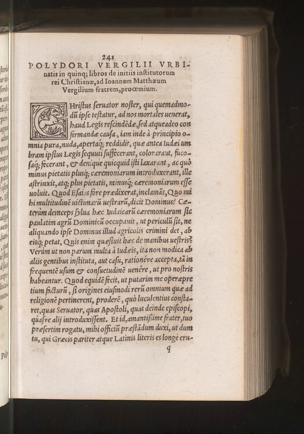 241
POLYDORI VERGILII VRBI-
natis in quinq; libros de initiis institutorum
rei Christianæ, ad Ioannem Matthæum
Vergilium fratrem, proœmium.
CHristus seruator noster, qui quemadmo-
dū ipse testatur, ad nos mortales uenerat,
haud Legis rescindēdæ, sed atqueadeo con
firmandæ causa, iam inde à principio o-
mnia pura, nuda, apertaq; reddidit, quæ antea Iudæi um
bram ipsius Legis sequuti suffecerant, colorarant, fuco-
saq; fecerant, & deniq; quicquid isti laxarant, ac quò
minus pietatis plusq; cæremoniarum introduxerant, ille
astrinxit, atq; plus pietatis, minusq; cæremoniarum esse
uoluit. Quod Esaias fore prædixerat, inclamās, Quo mi
hi multitudinē uictimarū uestrarū, dicit Dominus? Cæ-
terùm deinceps sylua hæc Iudaicarū cæremoniarum sic
paulatim agrū Dominicū occupauit, ut periculū sit, ne
aliquando ipse Dominus illud agricolis crimini det, ab
eisq; petat, Quis enim quæsiuit hæc de manibus uestris?
Verùm ut non parum multa à Iudæis, ita non modica ab
aliis gentibus instituta, aut casu, ratione accepta, tā in
frequentē usum & consuetudinē uenêre, ut pro nostris
habeantur. Quod equidē fecit, ut putarim me operæpre
tium facturū, si origines eiusmodi rerū omnium quæ ad
religionē pertinerent, proderē, quò luculentius consta-
ret, quas Seruator, quas Apostoli, quas deinde episcopi,
quásve alij introduxissent. Et id, amantissime frater, tuo
præsertim rogatu, mihi officiū præstādum duxi, ut dum
tu, qui Græcis pariter atque Latinis literis es longè eru-
q